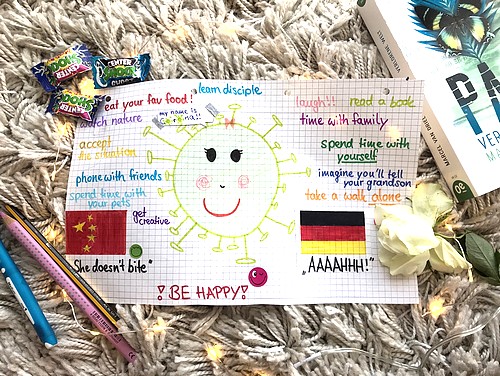 CENTER
SHOCK
CENTER
SHOCK
CENTER
SHOCK
eat your fav food!
learn disciple
watch nature
my name is
corona!!
accept
the situation
phone with friends
spend time with
your pets
get
creative
laugh!!
read a book
time with family
spend time with
yourself
imagine you'll tell
your grandson
take a walk alone
"She doesn't bite"
„AAAAHHH!"
! BE HAPPY!
MARCEL VAN DRIEL
DA
VER